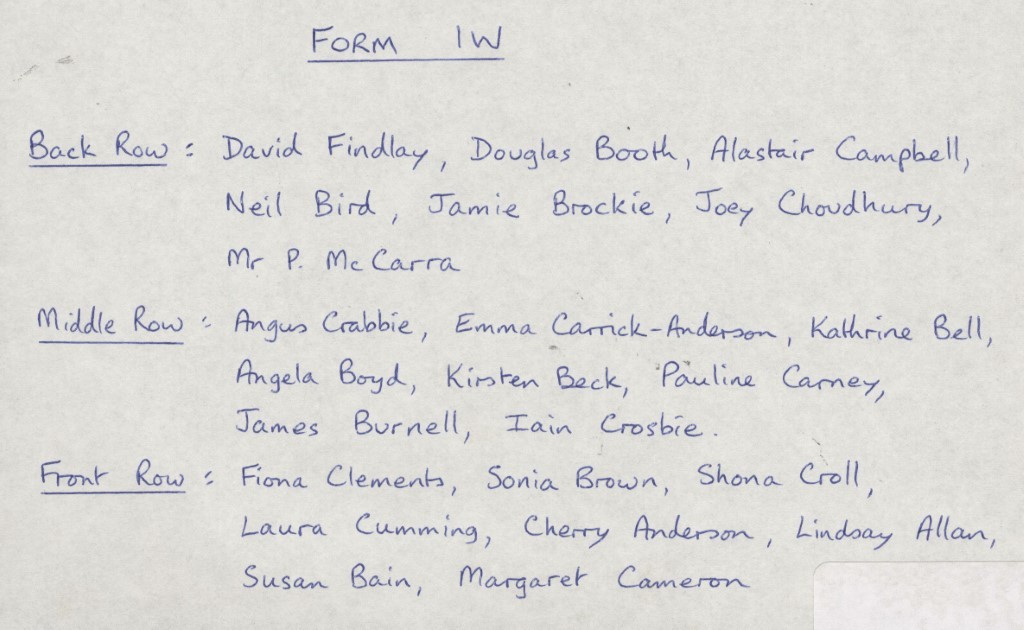 FORM 1W
Back Row : David Findlay, Douglas Booth, Alastair Campbell,
Neil Bird, Jamie Brockie, Joey Choudhury,
Mr P. McCarra
Middle Row : Angus Crabbie, Emma Carrick-Anderson, Kathrine Bell,
Angela Boyd, Kirsten Beck, Pauline Carney,
James Burnell, Iain Crosbie.
Front Row : Fiona Clements, Sonia Brown, Shona Croll,
Laura Cumming, Cherry Anderson, Lindsay Allan,
Susan Bain, Margaret Cameron